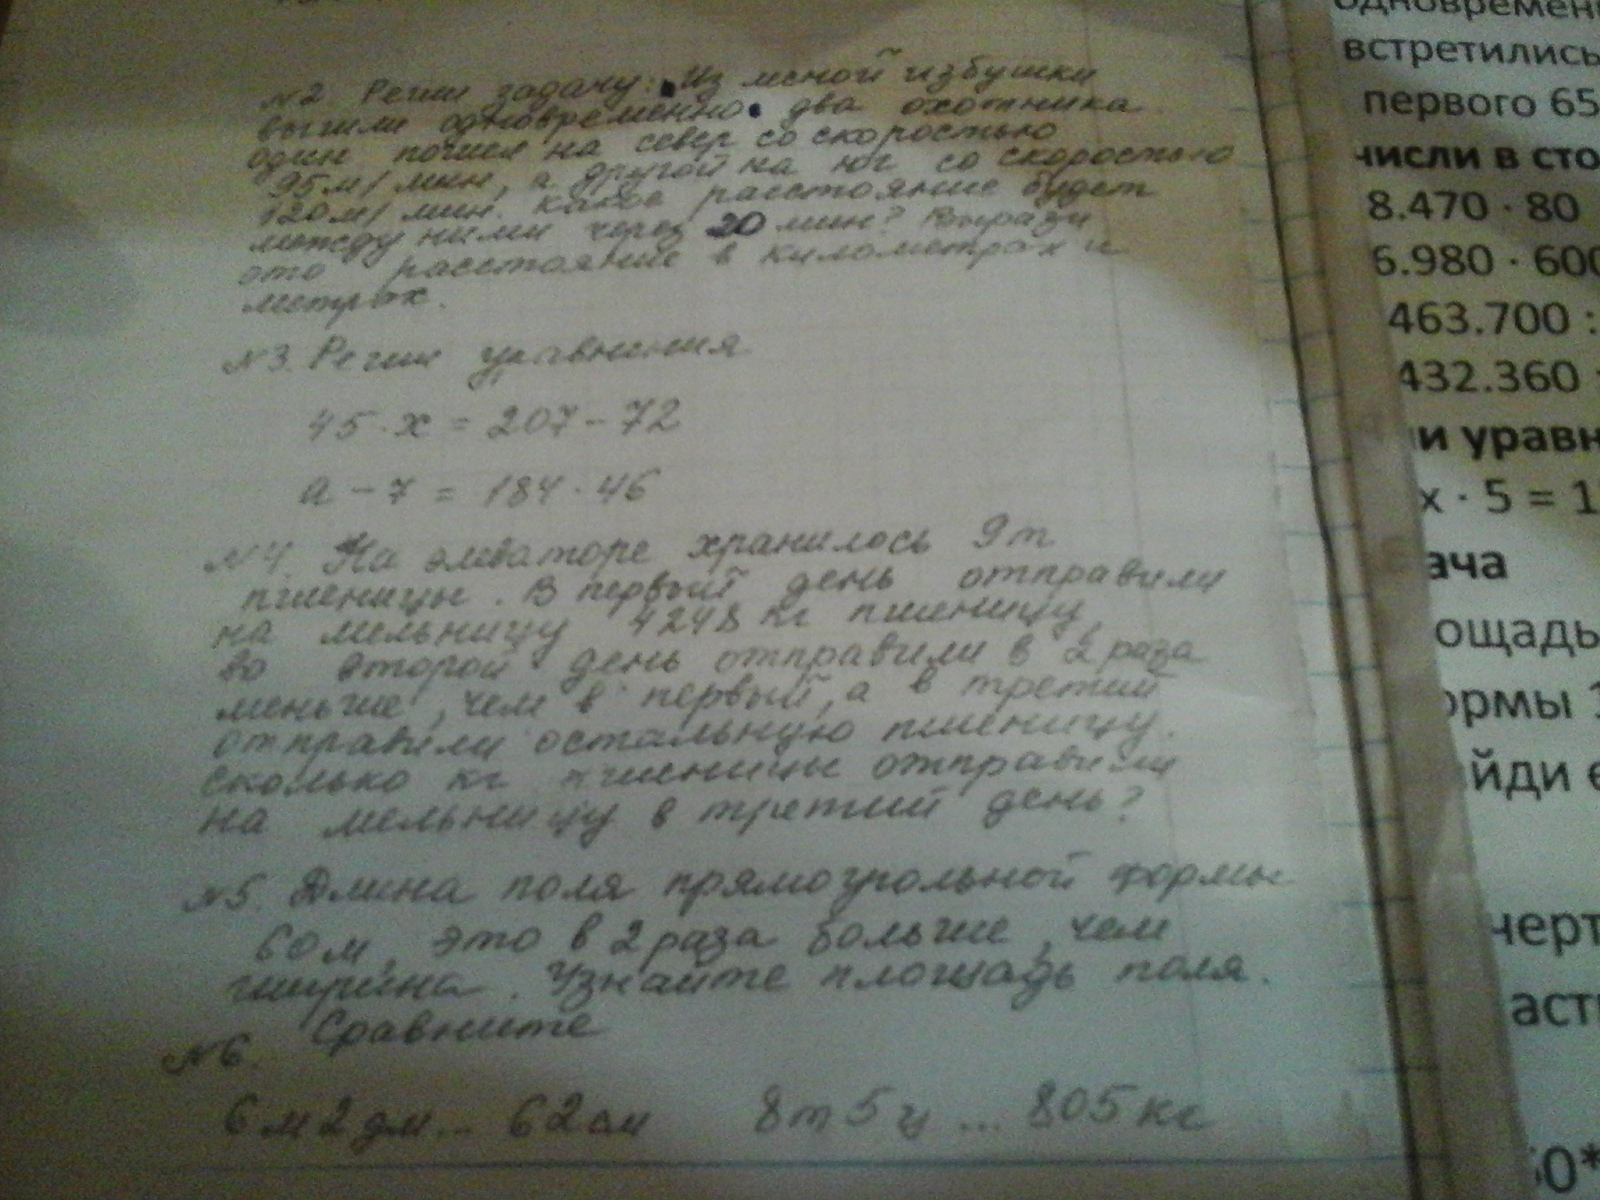 №2. Реши задачу: Из лесной избушки
вышли одновременно два охотника
один пошел на север со скоростью
95м/мин, а другой на юг со скоростью
120м/мин. какое расстояние будет
между ними через 20 мин? Вырази
это расстояние в километрах и
метрах.
№3. Реши уравнения
45·x = 207-72
а - 7 = 184·46
№4. На элеваторе хранилось 9т
пшеницы. В первый день отправили
на мельницу 4248 кг пшеницы,
во второй день отправили в 2 раза
меньше, чем в первый, а в третий
отправили остальную пшеницу.
сколько кг пшеницы отправили
на мельницу в третий день?
№5. Длина поля прямоугольной формы
60м, это в 2 раза больше, чем
ширина. Узнайте площадь поля.
№6. Сравните
6м2дм... 62см 8т5ц ... 805кг
одновремен
встретились
первого 65
числи в сто
8.470 · 80
6.980 · 600
463.700 :
432.360 :
и уравн
x · 5 = 1
ача
ощадь
ормы 1
йди
черт
аст
50*